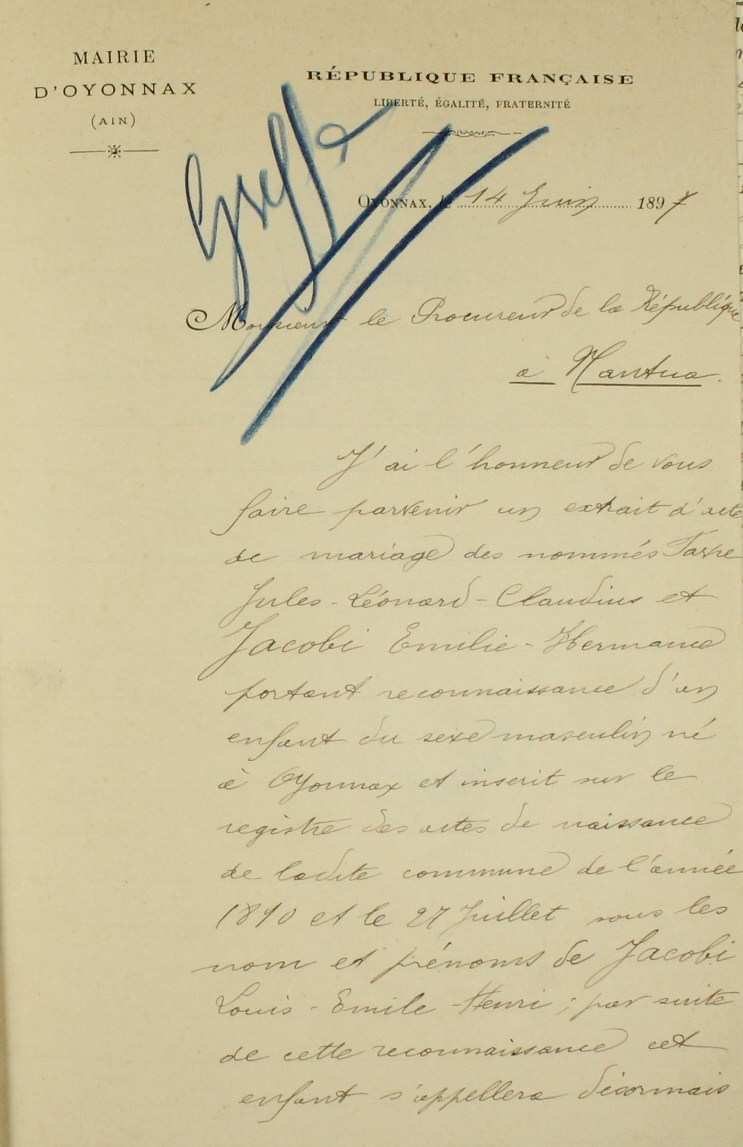 MAIRIE
D'OYONNAX
(AIN)
RÉPUBLIQUE FRANÇAISE
LIBERTÉ, ÉGALITÉ, FRATERNITÉ
Greffe
OYONNAX, le 14 Juin 1897
Monsieur le Procureur de la République
à Nantua.
J'ai l'honneur de vous
faire parvenir un extrait d'acte
de mariage des nommés
Jules-Léonard-Claudius et
Jacobi Emilie-Hermance
portant reconnaissance d'un
enfant du sexe masculin né
à Oyonnax et inscrit sur le
registre des actes de naissance
de ladite commune de l'année
1890 et le 27 Juillet sous les
nom et prénoms de Jacobi
Louis-Emile-Henri ; par suite
de cette reconnaissance cet
enfant s'appellera désormais